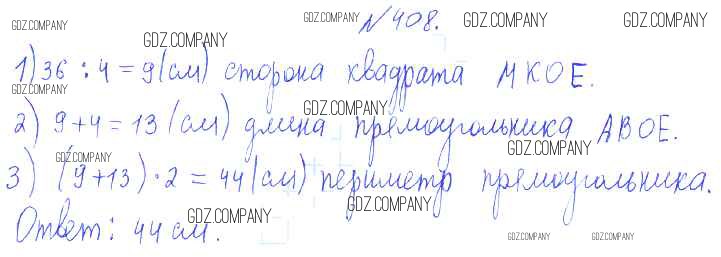 №408.
1) 36 : 4 = 9 (см) сторона квадрата МКОЕ.
2) 9+4 = 13 (см) длина прямоугольника АВОЕ.
3) (9+13) · 2 = 44 (см) периметр прямоугольника.
Ответ: 44 см.
GDZ.COMPANY
GDZ.COMPANY
GDZ.COMPANY
GDZ.COMPANY
GDZ.COMPANY
GDZ.COMPANY
GDZ.COMPANY
GDZ.COMPANY
GDZ.COMPANY
GDZ.COMPANY
GDZ.COMPANY
GDZ.COMPANY
GDZ.COMPANY
GDZ.COMPANY